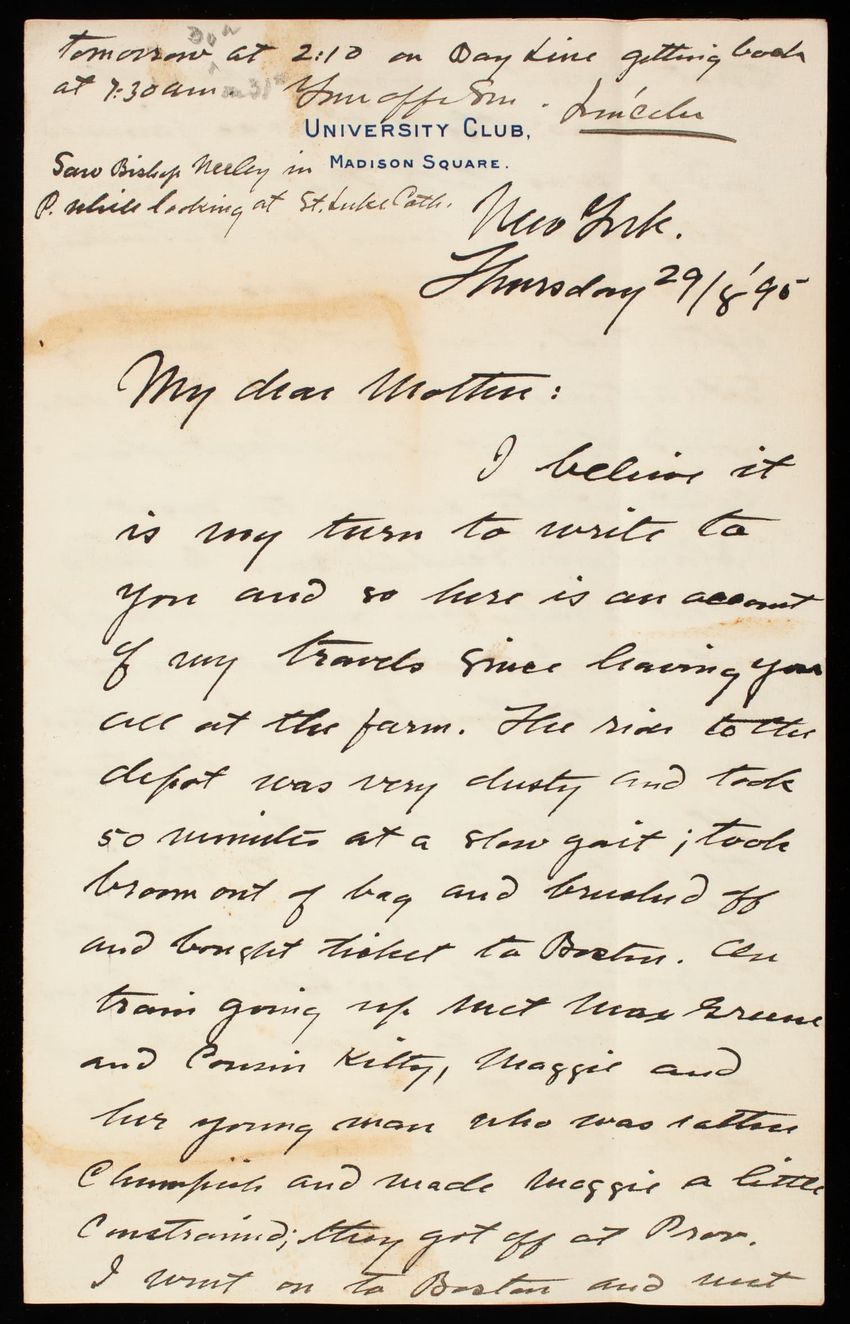 tomorrow 30th at 2:10 on Day Line getting back
at 7:30 am. on 31st Your aff. Son. Lincoln
UNIVERSITY CLUB,
MADISON SQUARE.
Saw Bishop Neeley in
P. while looking at St. Luke Cath.
New York.
Thursday 29/8 '95
My dear Mother:
I believe it
is my turn to write to
you and so here is an account
of my travels since leaving you
all at the farm. The ride to the
depot was very dusty and took
50 minutes at a slow gait; took
broom out of bag and brushed off
and bought ticket to Boston. On
train going up met Greene
and Cousin Kitty, Maggie and
her young man who was rather
Chumpish and made Maggie a little
Constrained; they got off at Prov.
I went on to Boston and met